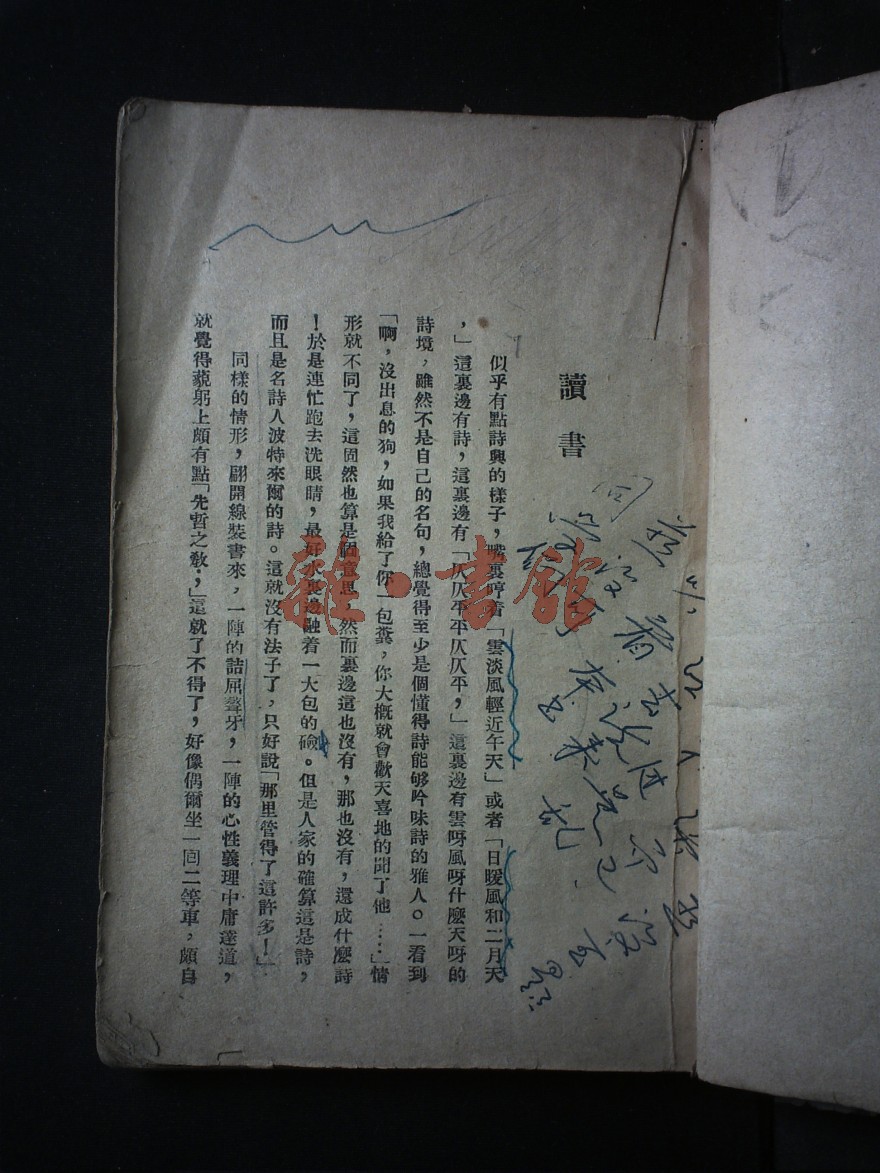 讀書
似乎有點詩興的樣子，嘴裏哼着「雲淡風輕近午天」或者「日暖風和二月天
，」這裏邊有詩，這裏邊有「仄仄平平仄仄平，」這裏邊有雲呀風呀什麼天呀的
詩境，雖然不是自己的名句，總覺得至少是個懂得詩能够吟味詩的雅人。一看到
「啊，沒出息的狗，如果我給了你一包糞，你大概就會歡天喜地的聞了他……」情
形就不同了，這固然也算是個意思，然而裏邊這也沒有，那也沒有，還成什麼詩
！於是連忙跑去洗眼睛，最好水裏邊融着一大包的礆。但是人家的確算這是詩，
而且是名詩人波特來爾的詩。這就沒有法子了，只好說「那里管得了這許多！」
同樣的情形，翻開線裝書來，一陣的詰屈聱牙，一陣的心性義理中庸達道，
就覺得藐躬上頗有點「先哲之教，」這就了不得了，好像偶爾坐一回二等車，頗自
雜·書館